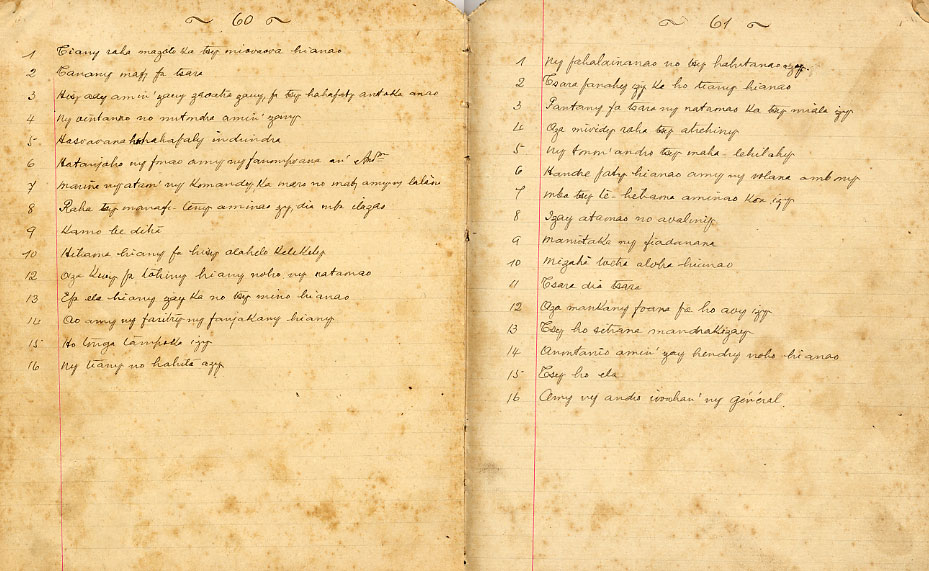 ~ 60 ~
1 Tiany raha mazoto ka tsy miovaova hianao
2 Tanany mafy fa tsara
3 Hisy asy amin' zany zavatra zany, fa tsy hahafaty antoka anao
4 Ny omtanao no mitondra amin' zany
5 Hasoavana hahafaly indrindra
6 Hatanjaho ny finao amy ny fanompoana an'
7 marina ny atam' ny Komandy ka mero no maty amy ny lalàn
8 Raha tsy manafi-teny aminao izy, dia mba ilazao
9 Kamo be ditra
10 Hitiana hiany fa hisy alahelo kelikely
12 Aza kivy fa tohiny hiany noho ny natamao
13 Efa ela hiany zay ka no tsy mino hianao
14 Ao amy ny faritry ny fanjakany hiany
15 Ho tonga tampoka izy
16 Ny tiany no hahita azy
~ 61 ~
1 Ny fahalainanao no tsy hahitanao azy.
2 Tsara fanahy izy ka ho tiany hianao
3 Fantany fa tsara ny natamao ka tsy miala izy
4 Aza mividy raha tsy atrehiny
5 ny tmm' andro tsy maha-lehilahy
6 Handre faty hianao amy ny volana ambony
7 mba tsy te-hihaona aminao koa izy
8 Izay ataonao no avaliny
9 manitaka ny fiadanana
10 Mizaha tocha aloha hianao
11 Tsara dia tsara
12 Aza mankany foana fa ho avy izy
13 Tsy ho sitrana mandrakizay
14 Anontanio amin' zay hendry noho hianao
15 Tsy ho ela
16 Amy ny andro ivonhan' ny général.